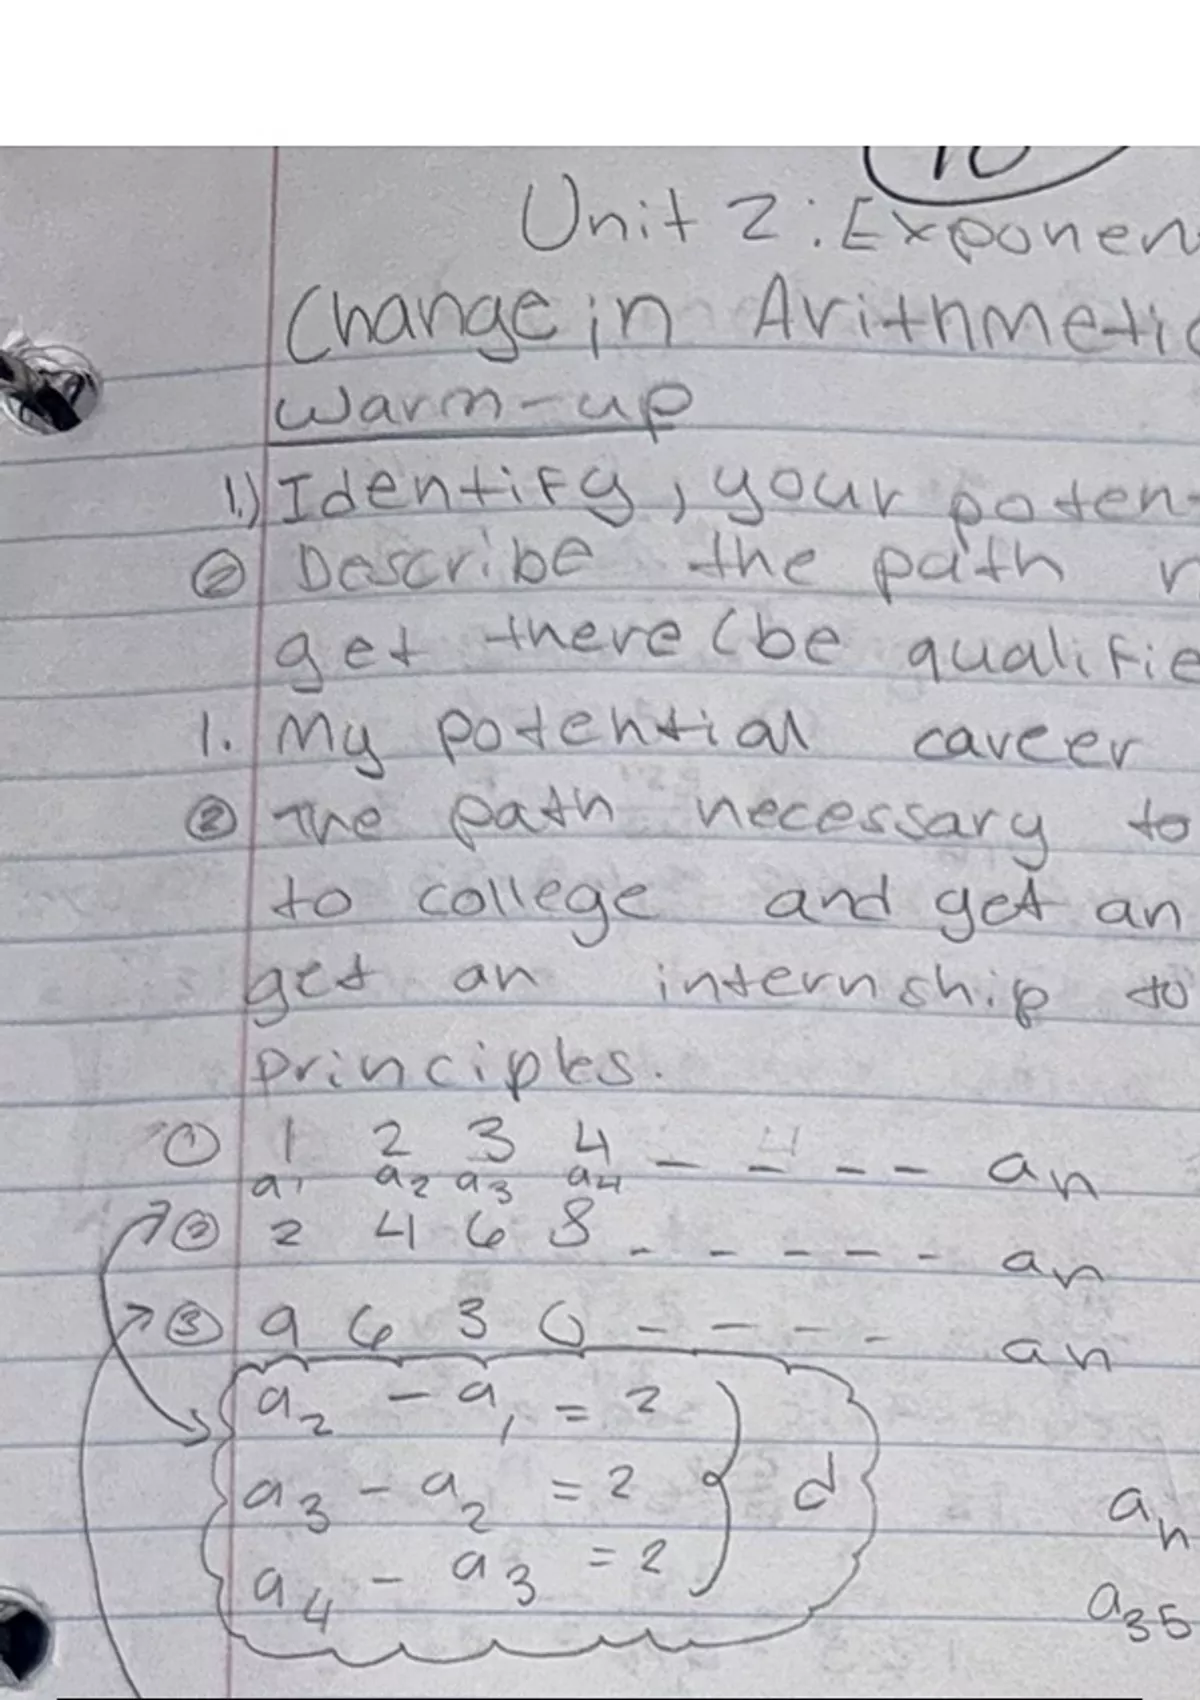 10
Unit 2: Exponen
Change in Arithmetic
Warm-up
1.) Identify, your poten
② Describe the path n
get there (be qualifie
1. My potential career
② The path necessary to
to college and get an
get an internship to
principles.
① 1 2 3 4 _ _ _ _ an
a1 a2 a3 a4
② 2 4 6 8 _ _ _ _ _ an
③ 9 6 3 0 _ _ _ _ an
a2 - a1 = 2
a3 - a2 = 2 } d an
a4 - a3 = 2 a35